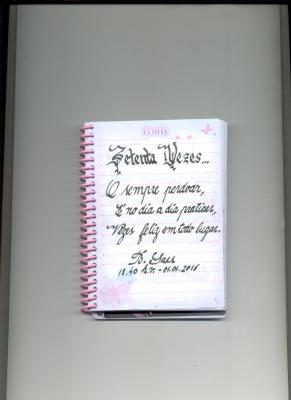 Setenta Vezes...
O sempre perdoar,
E no dia a dia praticar,
Vezes feliz em todo lugar.
18:40 hr. - 01.01.2016